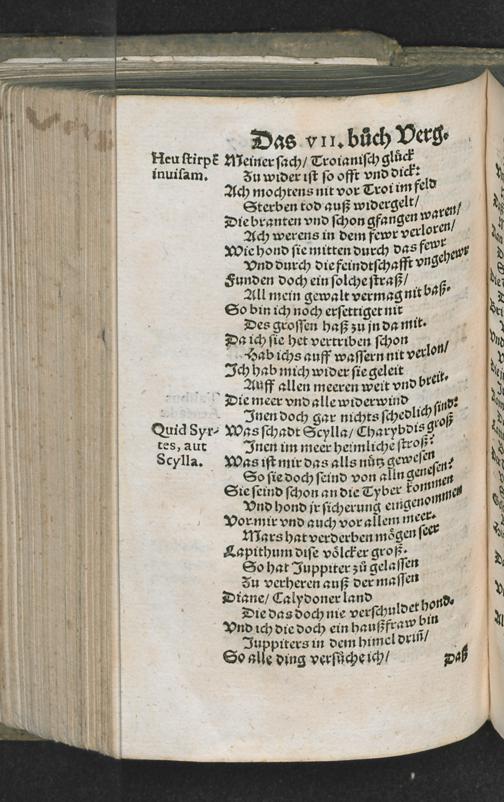 Das VII. bůch Verg.
Heu stirpē
inuisam.
Meiner sach/ Troianisch glück
Zu wider ist so offt vnd dick:
Ach mochtens nit vor Troi im feld
Sterben tod auß widergelt/
Die branten vnd schon gfangen waren/
Ach werens in dem fewr verloren/
Wie hond sie mitten durch das fewr
Vnd durch die feindtschafft vngehewr
Funden doch ein solche straß/
All mein gewalt vermag nit baß.
So bin ich noch ersettiget nit
Des grossen haß zu jn da mit.
Da ich sie het vertriben schon
Hab ichs auff wassern nit verlon/
Ich hab mich wider sie geleit
Auff allen meeren weit vnd breit.
Die meer vnd alle widerwind
Inen doch gar nichts schedlich sind:
Quid Syr-
tes, aut
Scylla.
Was schadt Scylla/ Charybdis groß
Inen im meer heimliche stroß?
Was ist mir das alls nütz gewesen
So sie doch seind von alln genesen?
Sie seind schon an die Tyber kommen
Vnd hond jr sicherung eingenommen
Vor mir vnd auch vor allem meer.
Mars hat verderben mögen seer
Lapithum dise völcker groß.
So hat Juppiter zů gelassen
Zu verheren auß der massen
Diane/ Calydoner land
Die das doch nie verschuldet hond.
Vnd ich die doch ein haußfraw bin
Juppiters in dem himel drin̄/
So alle ding versůche ich/
Daß